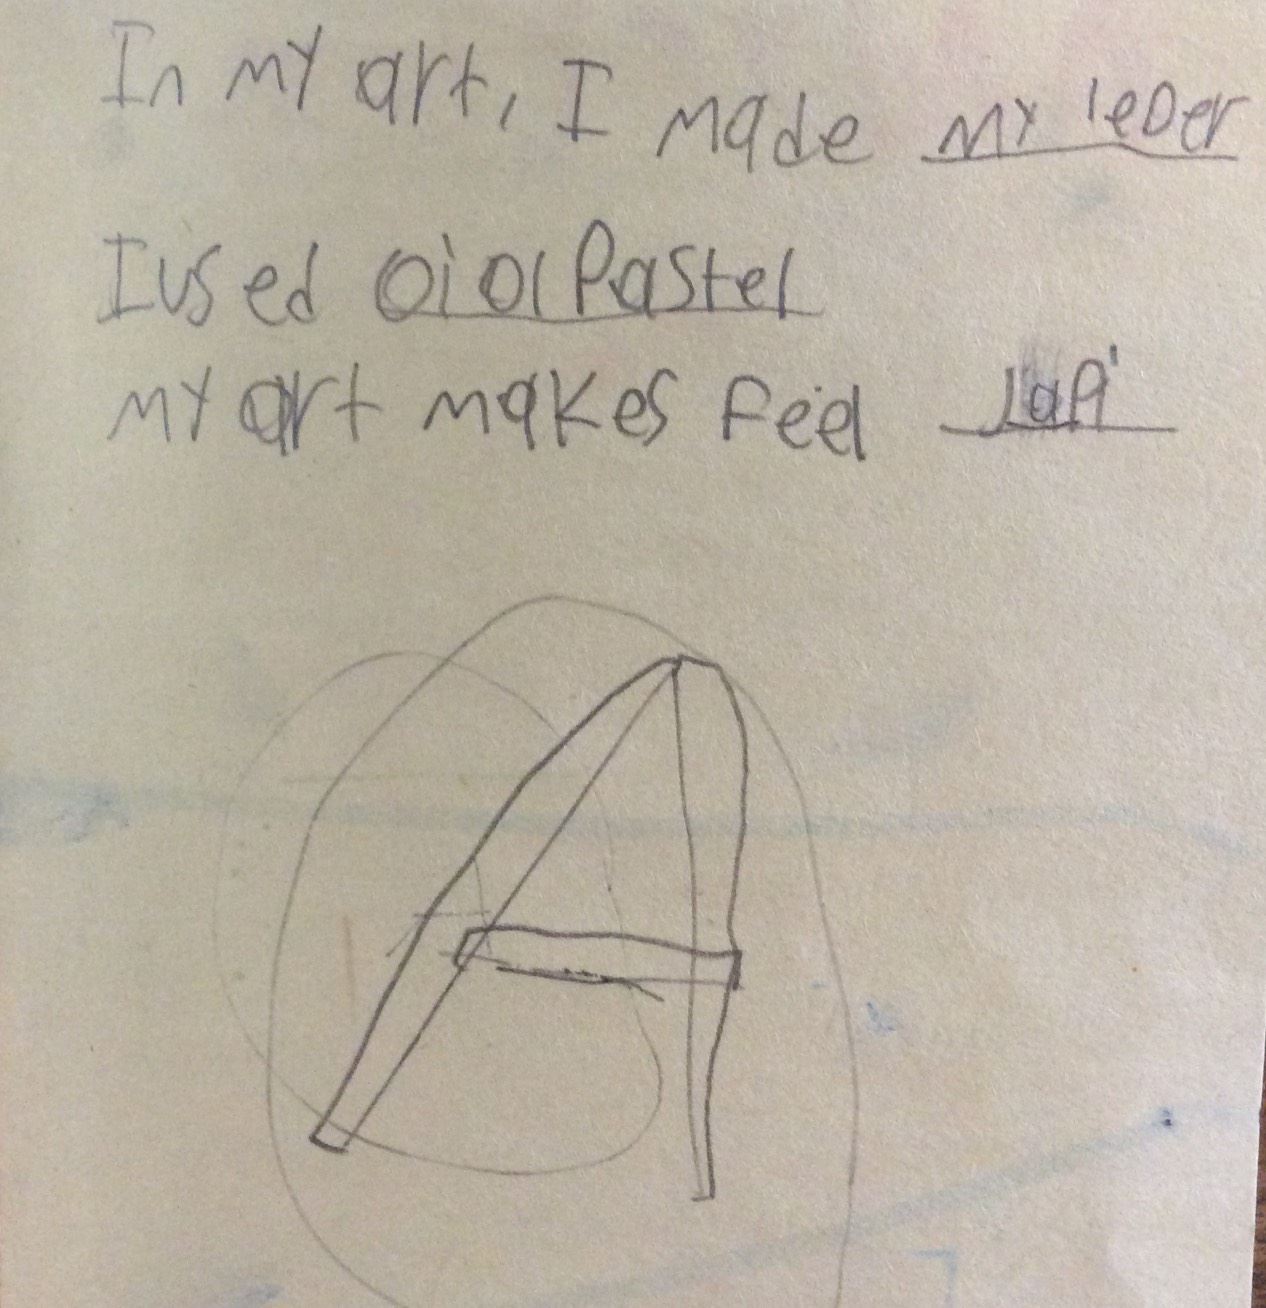 In my art, I made my leDer
I used oiol Pastel
my art makes feel
A